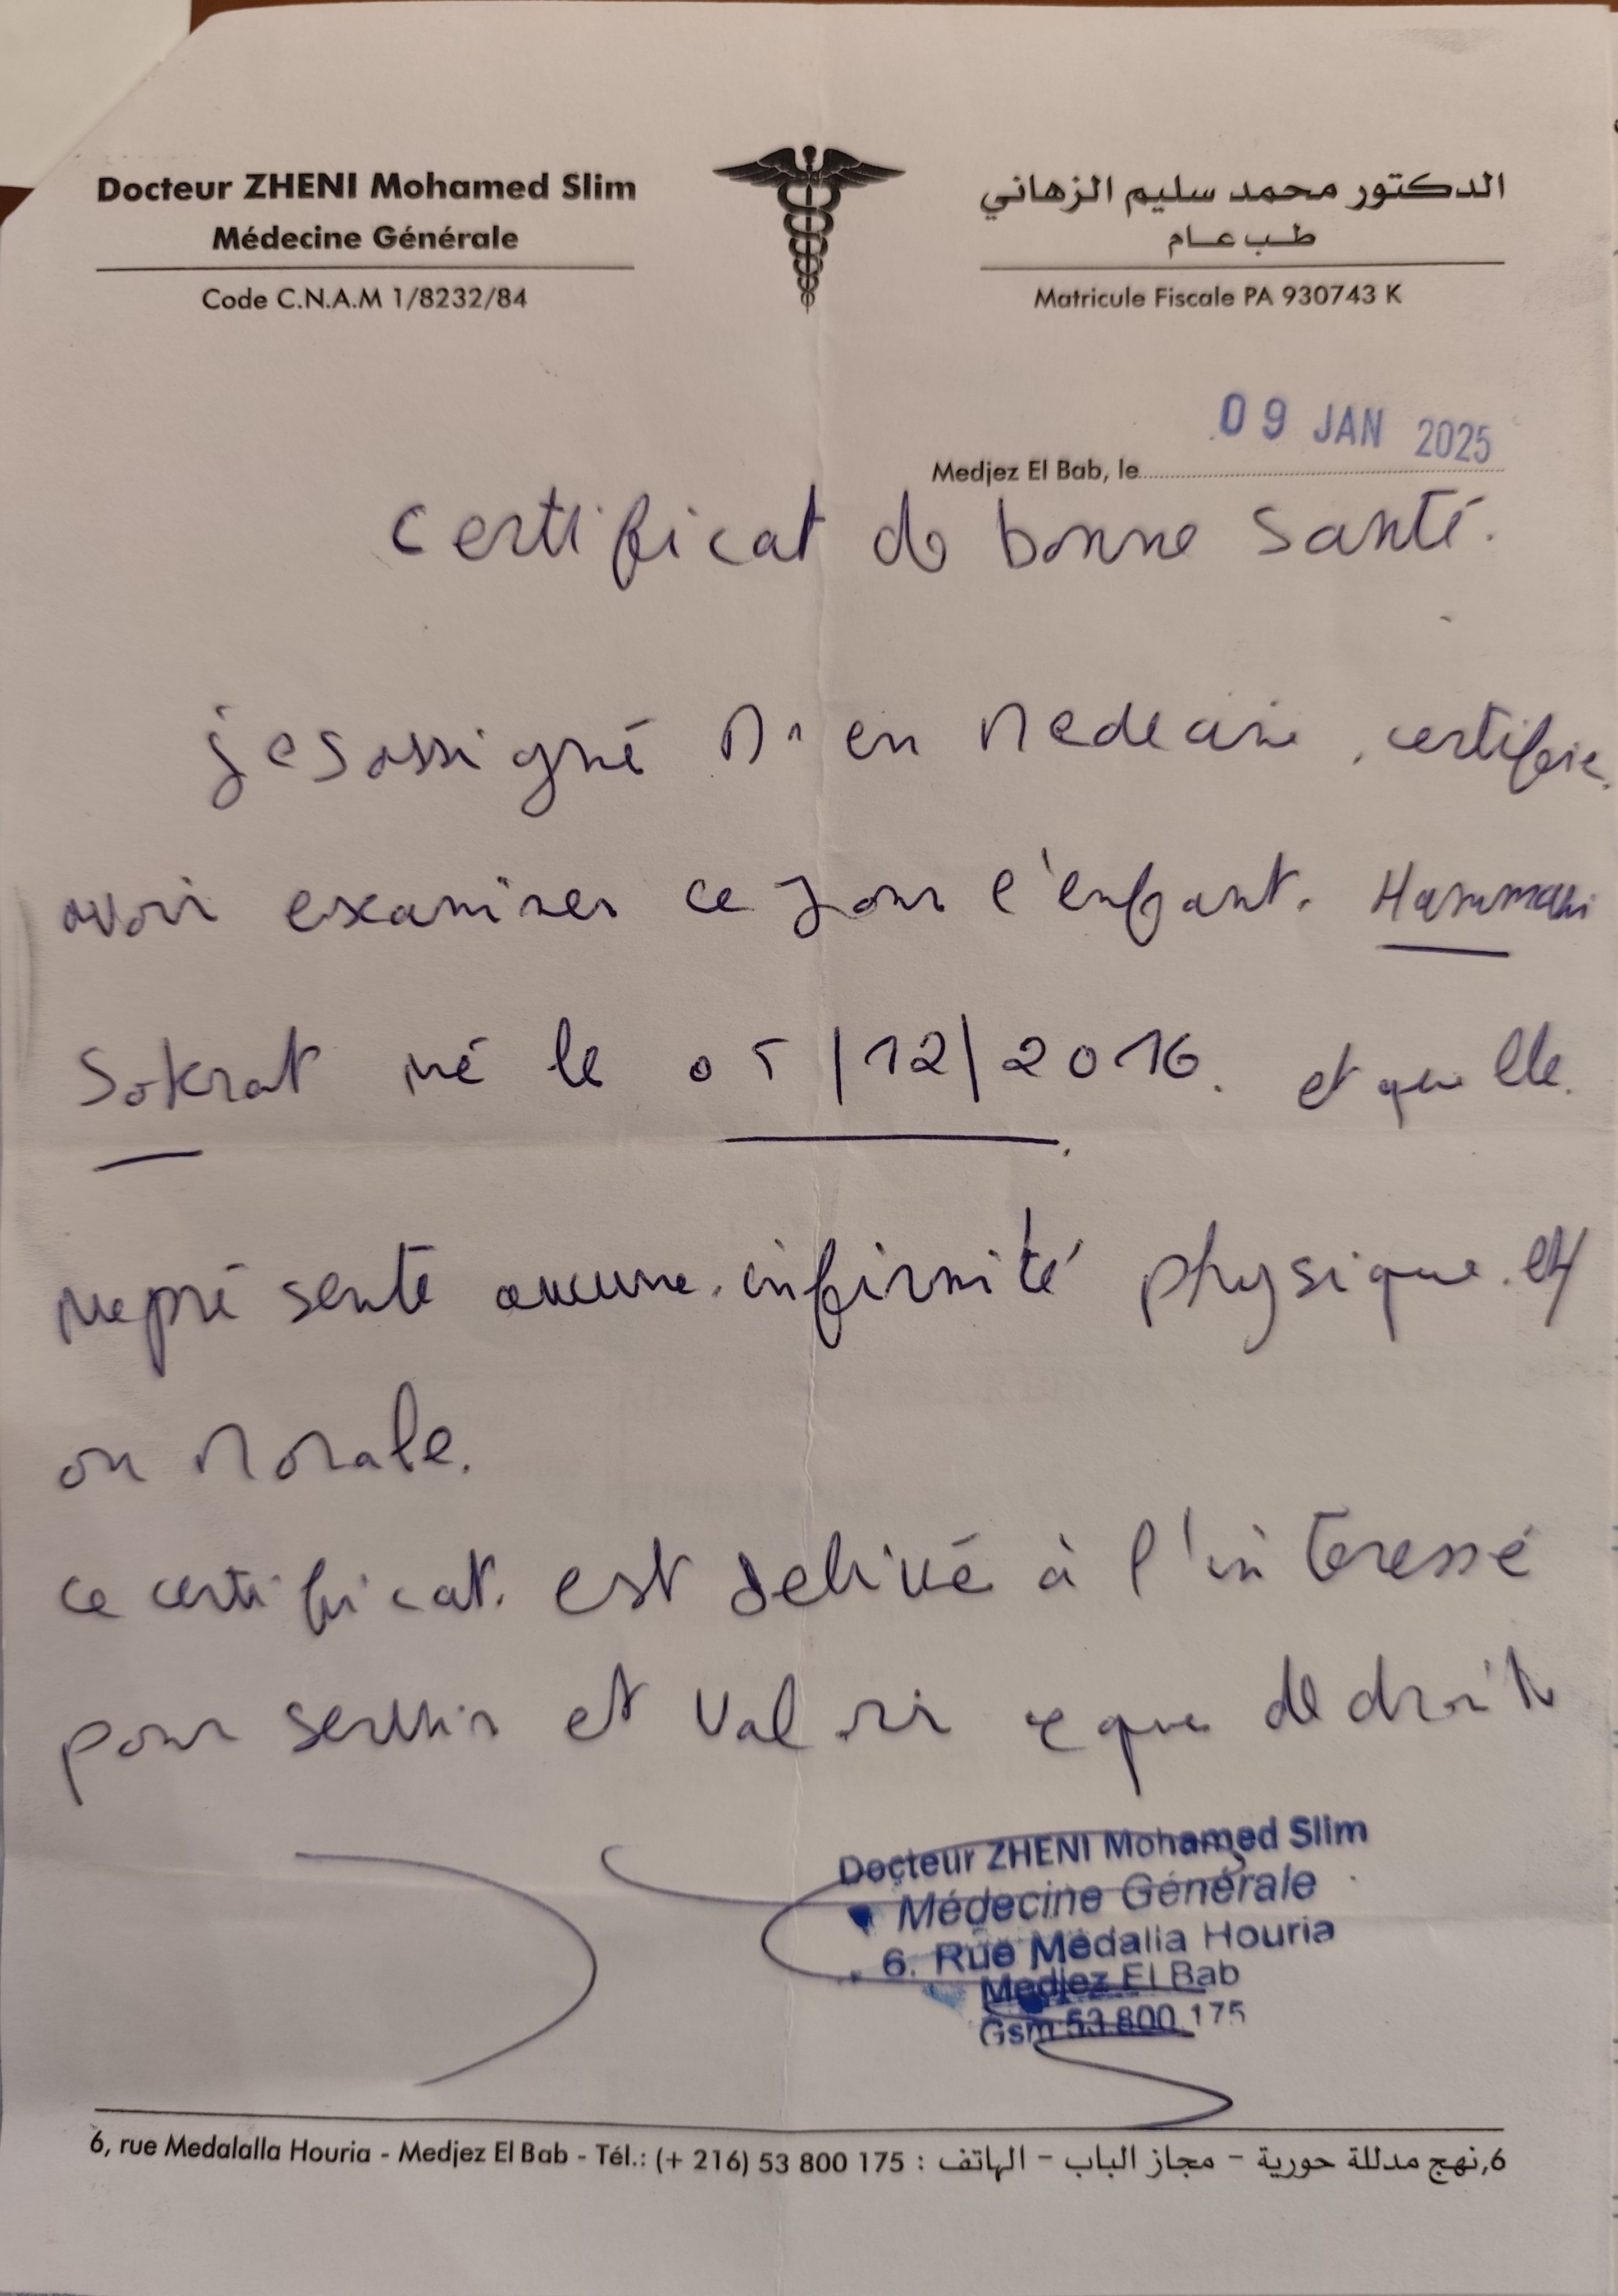 Docteur ZHENI Mohamed Slim
Médecine Générale
Code C.N.A.M 1/8232/84
الدكتور محمد سليم الزهاني
طب عام
Matricule Fiscale PA 930743 K
09 JAN 2025
Medjez El Bab, le
certificat de bonne santé.
je soussigné Dr en Medecine, certifie
avoir examiner ce jour l'enfant. Hammami
Sokrat né le 05/12/2016. et quelle
ne présente aucune infirmité physique et
ou Morale.
ce certificat est delivré à l'interessé
pour servir et valoir ce que de droit
Docteur ZHENI Mohamed Slim
Médecine Générale
6. Rue Medalla Houria
Medjez El Bab
Gsm 53 800 175
6, rue Medalalla Houria - Medjez El Bab - Tél.: (+ 216) 53 800 175 : 6,نهج مدللة حورية - مجاز الباب - الهاتف